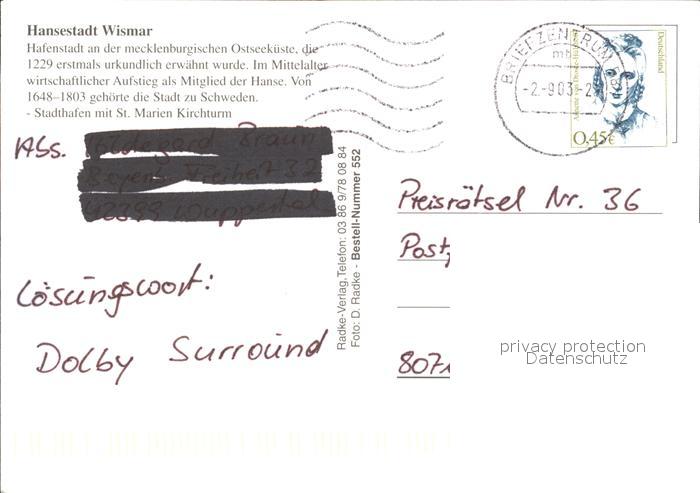 Hansestadt Wismar
Hafenstadt an der mecklenburgischen Ostseeküste, die
1229 erstmals urkundlich erwähnt wurde. Im Mittelalter
wirtschaftlicher Aufstieg als Mitglied der Hanse. Von
1648–1803 gehörte die Stadt zu Schweden.
- Stadthafen mit St. Marien Kirchturm
Abs.
Lösungswort:
Dolby Surround
Radke-Verlag, Telefon: 03 86 9/78 08 84
Foto: D. Radke - Bestell-Nummer 552
BRIEFZENTRUM
mb
-2.-9.03.-2
Deutschland
0,45€
Preisrätsel Nr. 36
Post
807
privacy protection
Datenschutz